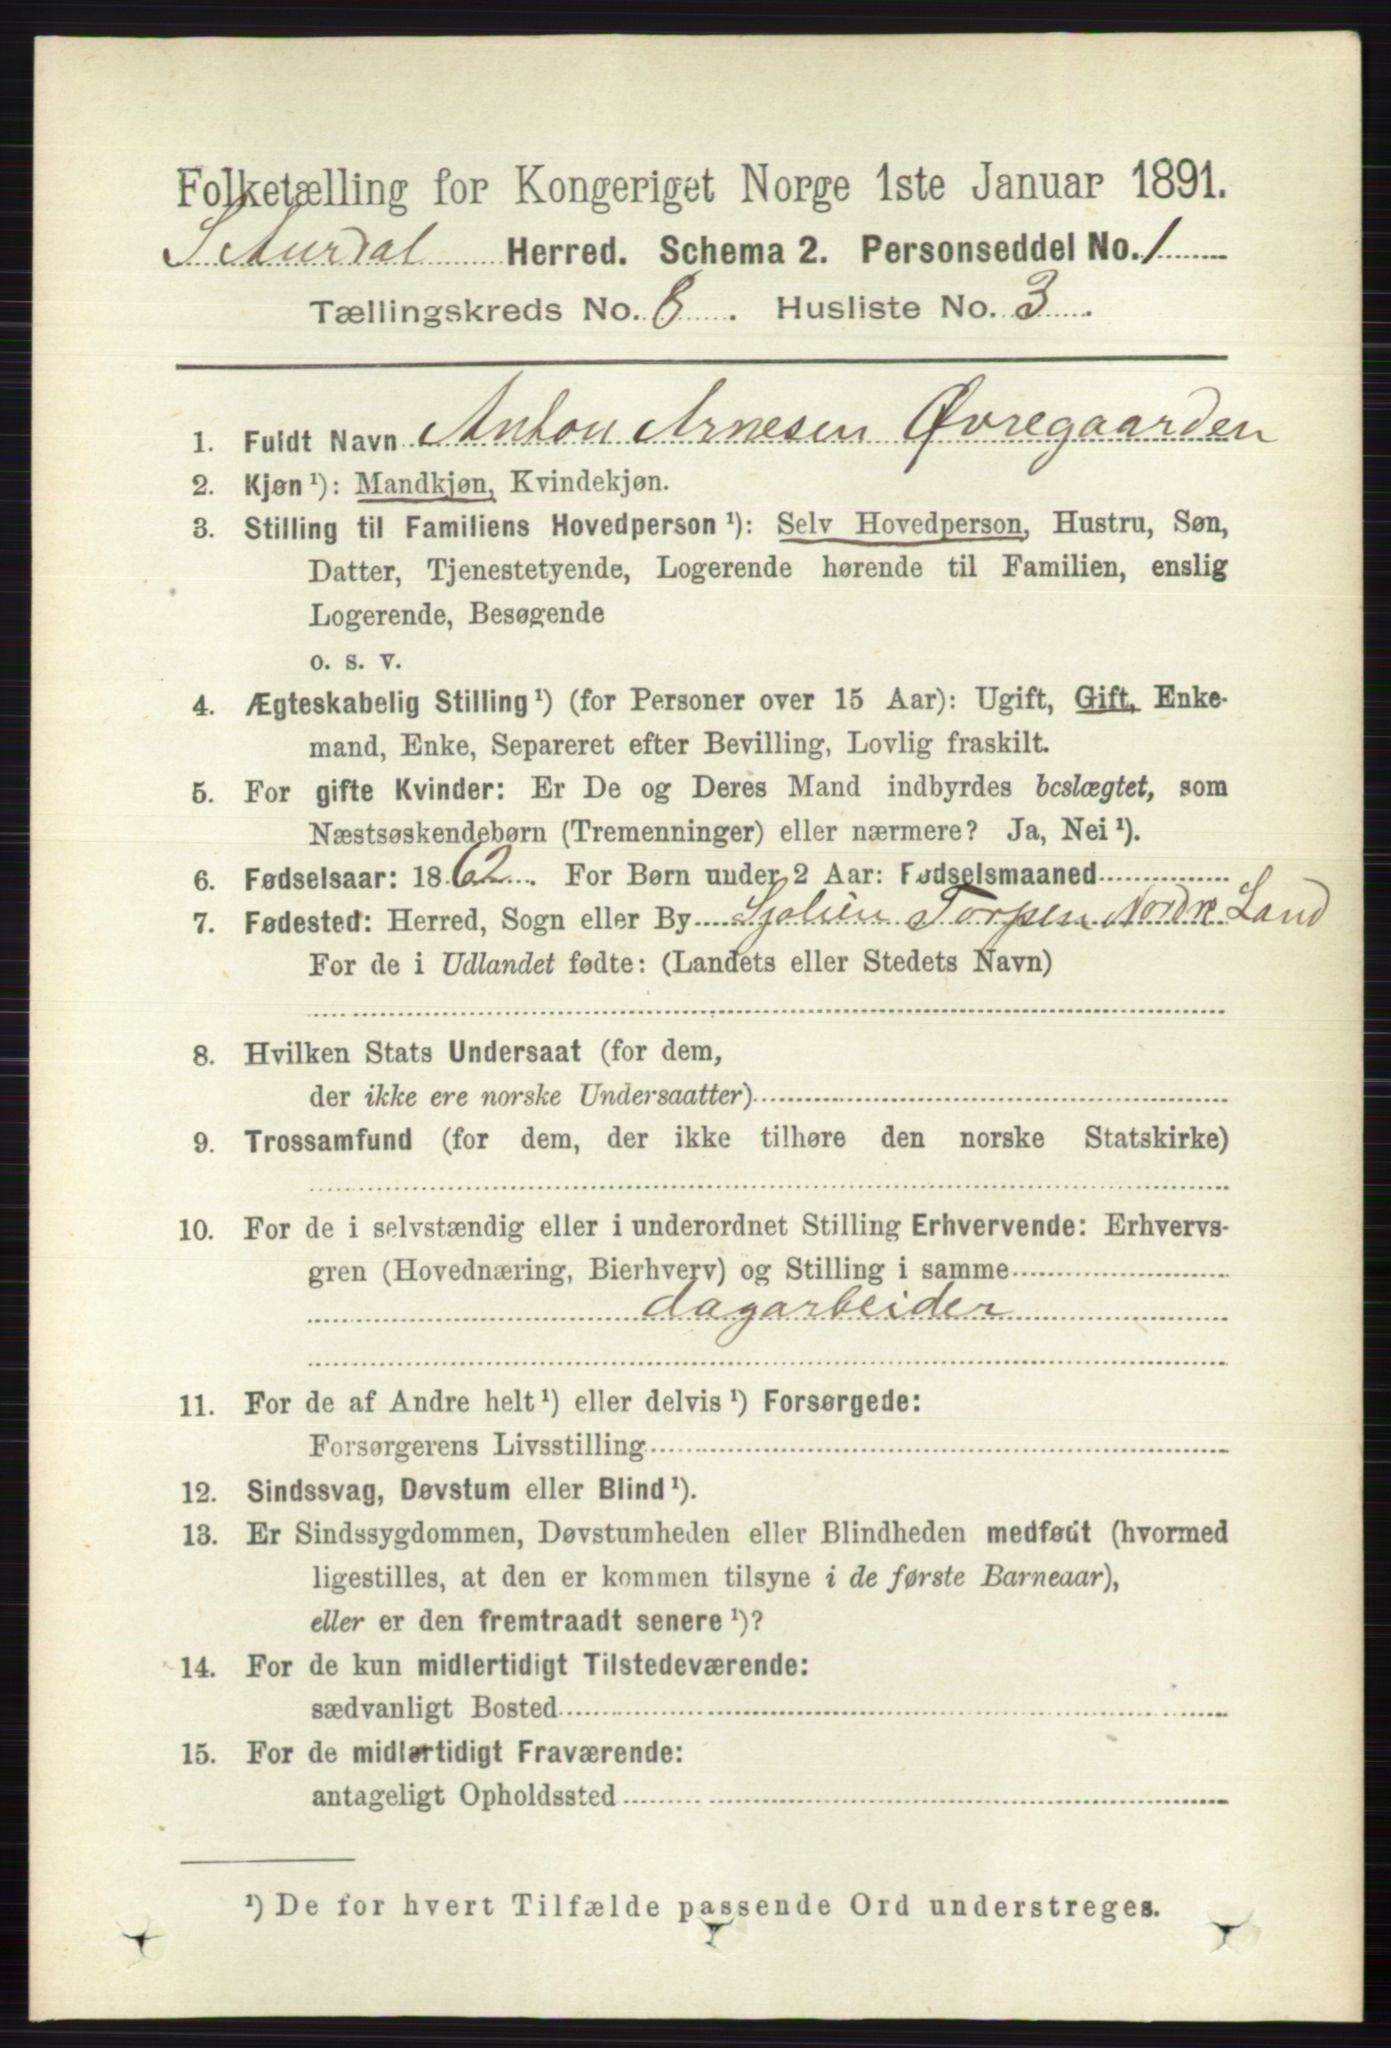 Folketælling for Kongeriget Norge 1ste Januar 1891.
S Aurdal Herred. Schema 2. Personseddel No. 1
Tællingskreds No. 8. Husliste No. 3.
1. Fuldt Navn Anton Arnesen Øvregaarden
2. Kjøn ¹): Mandkjøn, Kvindekjøn.
3. Stilling til Familiens Hovedperson ¹): Selv Hovedperson, Hustru, Søn,
Datter, Tjenestetyende, Logerende hørende til Familien, enslig
Logerende, Besøgende
o. s. v.
4. Ægteskabelig Stilling ¹) (for Personer over 15 Aar): Ugift, Gift, Enke-
mand, Enke, Separeret efter Bevilling, Lovlig fraskilt.
5. For gifte Kvinder: Er De og Deres Mand indbyrdes beslægtet, som
Næstsøskendebørn (Tremenninger) eller nærmere? Ja, Nei ¹).
6. Fødselsaar: 1862. For Børn under 2 Aar: Fødselsmaaned
7. Fødested: Herred, Sogn eller By Torpen Nordre Land
For de i Udlandet fødte: (Landets eller Stedets Navn)
8. Hvilken Stats Undersaat (for dem,
der ikke ere norske Undersaatter)
9. Trossamfund (for dem, der ikke tilhøre den norske Statskirke)
10. For de i selvstændig eller i underordnet Stilling Erhvervende: Erhvervs-
gren (Hovednæring, Bierhverv) og Stilling i samme
dagarbeider
11. For de af Andre helt ¹) eller delvis ¹) Forsørgede:
Forsørgerens Livsstilling
12. Sindssvag, Døvstum eller Blind ¹).
13. Er Sindssygdommen, Døvstumheden eller Blindheden medfødt (hvormed
ligestilles, at den er kommen tilsyne i de første Barneaar),
eller er den fremtraadt senere ¹)?
14. For de kun midlertidigt Tilstedeværende:
sædvanligt Bosted
15. For de midlertidigt Fraværende:
antageligt Opholdssted
¹) De for hvert Tilfælde passende Ord understreges.